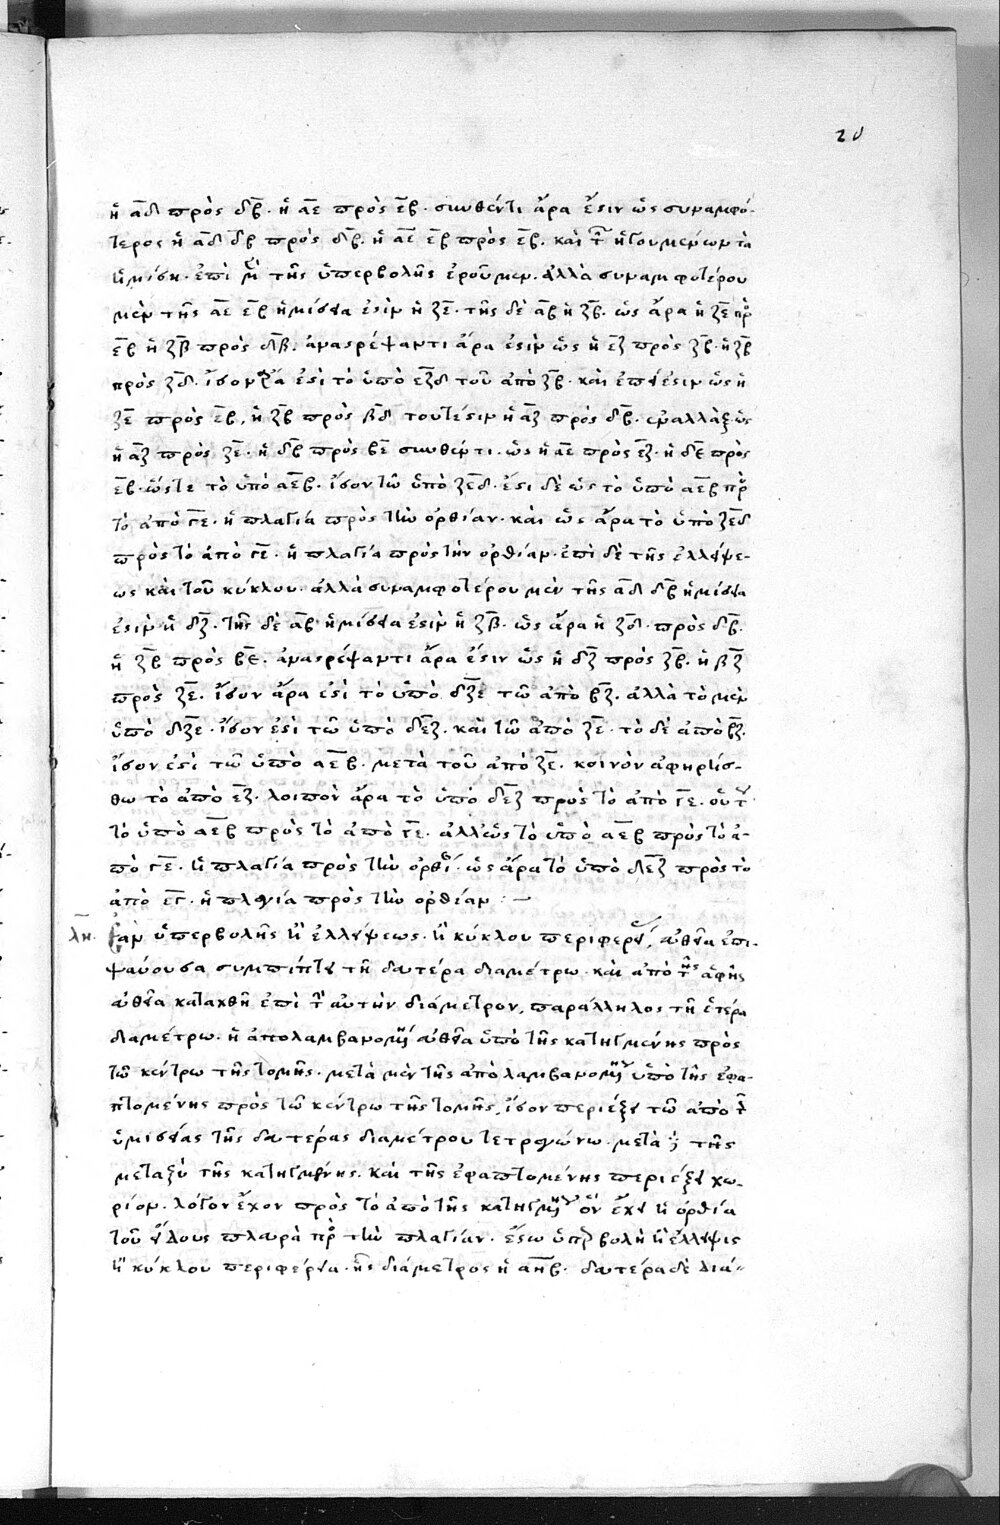 20
ἡ α̅δ̅ πρὸς δ̅β̅. ἡ α̅ε̅ πρὸς ε̅β̅. συνθέντι ἄρα ἐστιν ὡς συναμφό-
τερος ἡ α̅δ̅ δ̅β̅ πρὸς δ̅β̅. ἡ α̅ε̅ ε̅β̅ πρὸς ε̅β̅. καὶ τῶν ἡγουμένων τὰ
ἡμίση. ἐπὶ μὲν τῆς ὑπερβολῆς ἐροῦμεν. ἀλλὰ συναμφοτέρου
μὲν τῆς α̅ε̅ ε̅β̅ ἡμίσεια ἐστὶν ἡ ζ̅ε̅. τῆς δὲ α̅β̅ ἡ ζ̅β̅. ὡς ἄρα ἡ ζ̅ε̅ πρὸς
ε̅β̅ ἡ ζ̅β̅ πρὸς δ̅β̅. ἀναστρέψαντι ἄρα ἐστὶν ὡς ἡ ε̅ζ̅ πρὸς ζ̅β̅. ἡ ζ̅β̅
πρὸς ζ̅δ̅. ἴσον ἄρα ἐστὶ τὸ ὑπὸ ε̅ζ̅δ̅ τοῦ ἀπὸ ζ̅β̅. καὶ ἐπεί ἐστιν ὡς ἡ
ζ̅ε̅ πρὸς ε̅β̅, ἡ ζ̅β̅ πρὸς β̅δ̅ τουτέστιν ἡ α̅ζ̅ πρὸς δ̅β̅. ἐναλλὰξ ὡς
ἡ α̅ζ̅ πρὸς ζ̅ε̅. ἡ δ̅β̅ πρὸς β̅ε̅ συνθέντι. ὡς ἡ α̅ε̅ πρὸς ε̅ζ̅. ἡ δ̅ε̅ πρὸς
ε̅β̅. ὥστε τὸ ὑπὸ α̅ε̅β̅. ἴσον τῶ ὑπὸ ζ̅ε̅δ̅. ἐστὶ δὲ ὡς τὸ ὑπὸ α̅ε̅β̅ πρὸς
τὸ ἀπὸ γ̅ε̅. ἡ πλαγία πρὸς τὴν ὀρθίαν. καὶ ὡς ἄρα τὸ ὑπὸ ζ̅ε̅δ̅
πρὸς τὸ ἀπὸ γ̅ε̅. ἡ πλαγία πρὸς τὴν ὀρθίαν. ἐπὶ δὲ τῆς ἐλλείψε-
ως καὶ τοῦ κύκλου. ἀλλὰ συναμφοτέρου μὲν τῆς α̅δ̅ δ̅β̅ ἡμίσεια
ἐστὶν ἡ δ̅ζ̅. τῆς δὲ α̅β̅ ἡμίσεια ἐστὶν ἡ ζ̅β̅. ὡς ἄρα ἡ ζ̅δ̅. πρὸς δ̅β̅.
ἡ ζ̅β̅ πρὸς β̅ε̅. ἀναστρέψαντι ἄρα ἐστιν ὡς ἡ δ̅ζ̅ πρὸς ζ̅β̅. ἡ β̅ζ̅
πρὸς ζ̅ε̅. ἴσον ἄρα ἐστὶ τὸ ὑπὸ δ̅ζ̅ε̅ τῶ ἀπὸ β̅ζ̅. ἀλλὰ τὸ μὲν
ὑπὸ δ̅ζ̅ε̅. ἴσον ἐστὶ τῶ ὑπὸ δ̅ε̅ζ̅. καὶ τῶ ἀπὸ ζ̅ε̅. τὸ δὲ ἀπὸ β̅ζ̅.
ἴσον ἐστὶ τῶ ὑπὸ α̅ε̅β̅. μετὰ τοῦ ἀπὸ ζ̅ε̅. κοινὸν ἀφηρήσ-
θω τὸ ἀπὸ ε̅ζ̅. λοιπὸν ἄρα τὸ ὑπὸ δ̅ε̅ζ̅ πρὸς τὸ ἀπὸ γ̅ε̅. οὕτως
τὸ ὑπὸ α̅ε̅β̅ πρὸς τὸ ἀπὸ γ̅ε̅. ἀλλ' ὡς τὸ ὑπὸ α̅ε̅β̅ πρὸς τὸ ἀ-
πὸ γ̅ε̅. ἡ πλαγία πρὸς τὴν ὀρθίαν. ὡς ἄρα τὸ ὑπὸ δ̅ε̅ζ̅ πρὸς τὸ
ἀπὸ ε̅γ̅. ἡ πλαγία πρὸς τὴν ὀρθίαν : —
λη. Ἐὰν ὑπερβολῆς ἢ ἐλλείψεως. ἢ κύκλου περιφερείας, εὐθεῖα ἐπι-
ψαύουσα συμπίπτει τῆ δευτέρα διαμέτρω. καὶ ἀπὸ τῆς ἁφῆς
εὐθεῖα καταχθῆ ἐπὶ τὴν αὐτὴν διάμετρον, παράλληλος τῆ ἑτέρα
διαμέτρω. ἡ ἀπολαμβανομένη εὐθεῖα ὑπὸ τῆς κατηγμένης πρὸς
τῶ κέντρω τῆς τομῆς. μετὰ μὲν τῆς ἀπολαμβανομένης ὑπὸ τῆς ἐφα-
πτομένης πρὸς τῶ κέντρω τῆς τομῆς, ἴσον περιέξει τῶ ἀπὸ τῆς
ἡμισείας τῆς δευτέρας διαμέτρου τετραγώνω. μετὰ δὲ τῆς
μεταξὺ τῆς κατηγμένης. καὶ τῆς ἐφαπτομένης περιέξει χω-
ρίον. λόγον ἔχον πρὸς τὸ ἀπὸ τῆς κατηγμένης ὃν ἔχει ἡ ὀρθία
τοῦ εἴδους πλευρὰ πρὸς τὴν πλαγίαν. ἔστω ὑπερβολὴ ἢ ἔλλειψις
ἢ κύκλου περιφέρεια. ἧς διάμετρος ἡ α̅η̅β̅. δευτέρα δὲ διά-